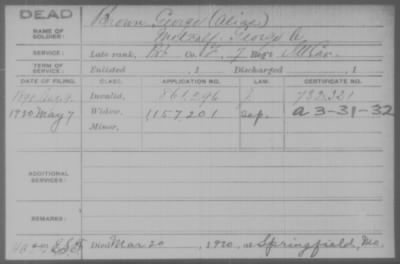 DEAD
NAME OF SOLDIER: Brown George (Alias)
Metcalf, George A.
SERVICE: Late rank, Pvt Co. 7 Reg't Ill Cav.
TERM OF SERVICE: Enlisted , 1 Discharged , 1
DATE OF FILING. CLASS. APPLICATION NO. LAW. CERTIFICATE NO.
Invalid, 861,296 732,321
1920 May 7 Widow, 1157201 a 3-31-32
Minor,
ADDITIONAL SERVICES:
REMARKS:
Died Mar 20 , 1920, at Springfield, Mo.